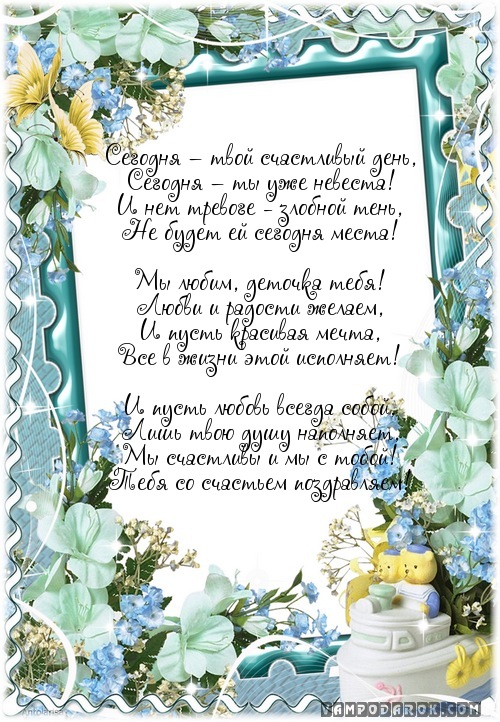 Сегодня – твой счастливый день,
Сегодня – ты уже невеста!
И нет тревоге – злобной тень,
Не будет ей сегодня места!
Мы любим, деточка тебя!
Любви и радости желаем,
И пусть красивая мечта,
Все в жизни этой исполняет!
И пусть любовь всегда собой,
Лишь твою душу наполняет,
Мы счастливы и мы с тобой!
Тебя со счастьем поздравляем!
VAMPODAROK.COM